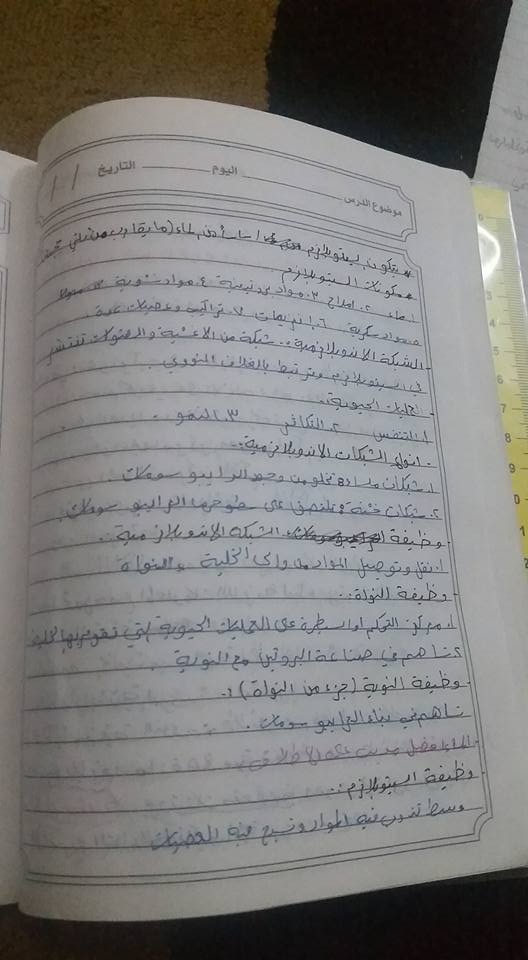 موضوع الدرس اليوم التاريخ / /
* يتكون السيتوبلازم اساسا من الماء (ما يقارب من ثلثي
* مكونات السيتوبلازم
1. ماء 2. املاح 3. مواد بروتينية 4. مواد
5. مواد سكرية 6. انزيمات 7. تراكيب وعضيات عدة.
الشبكة الاندوبلازمية :. شبكة من الاغشية والقنوات تنتشر
في السيتوبلازم وترتبط بالغلاف النووي.
العمليات الحيوية:.
1. التنفس 2. التكاثر 3. النمو.
. انواع الشبكات الاندوبلازمية:.
1. شبكات ملساء تخلو من وجود الرايبوسومات.
2. شبكات خشنة وتلتصق على سطوحها الرايبوسومات.
وظيفة الشبكة الاندوبلازمية:.
1. نقل وتوصيل المواد من والى الخلية والنواة
وظيفة النواة:.
1. مركز التحكم او السيطرة على العمليات الحيوية التي تقوم بها الخلية
2. تساهم في صناعة البروتين مع النوية.
وظيفة النوية (جزء من النواة):.
تساهم في بناء الرايبوسومات.
الماء افضل مذيب على الاطلاق
وظيفة السيتوبلازم:.
وسط تذوب فيه المواد وتسبح فيه العضيات